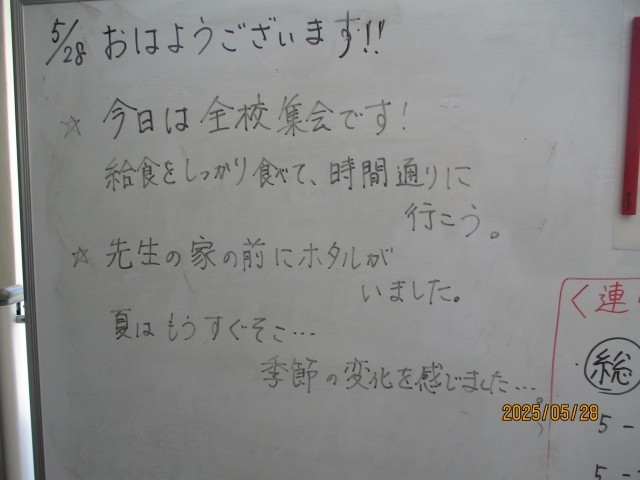 5/28 おはようございます!!
☆ 今日は全校集会です!
給食をしっかり食べて、時間通りに
行こう。
☆ 先生の家の前にホタルが
いました。
夏はもうすぐそこ…
季節の変化を感じました…
2025/05/28
<連
総
5-
5-